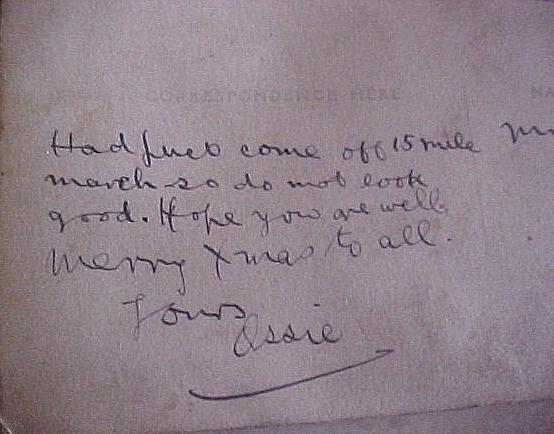 CORRESPONDENCE HERE
Had just come off 15 mile
march so do not look
good. Hope you are well.
Merry Xmas to all.
Yours
Ossie